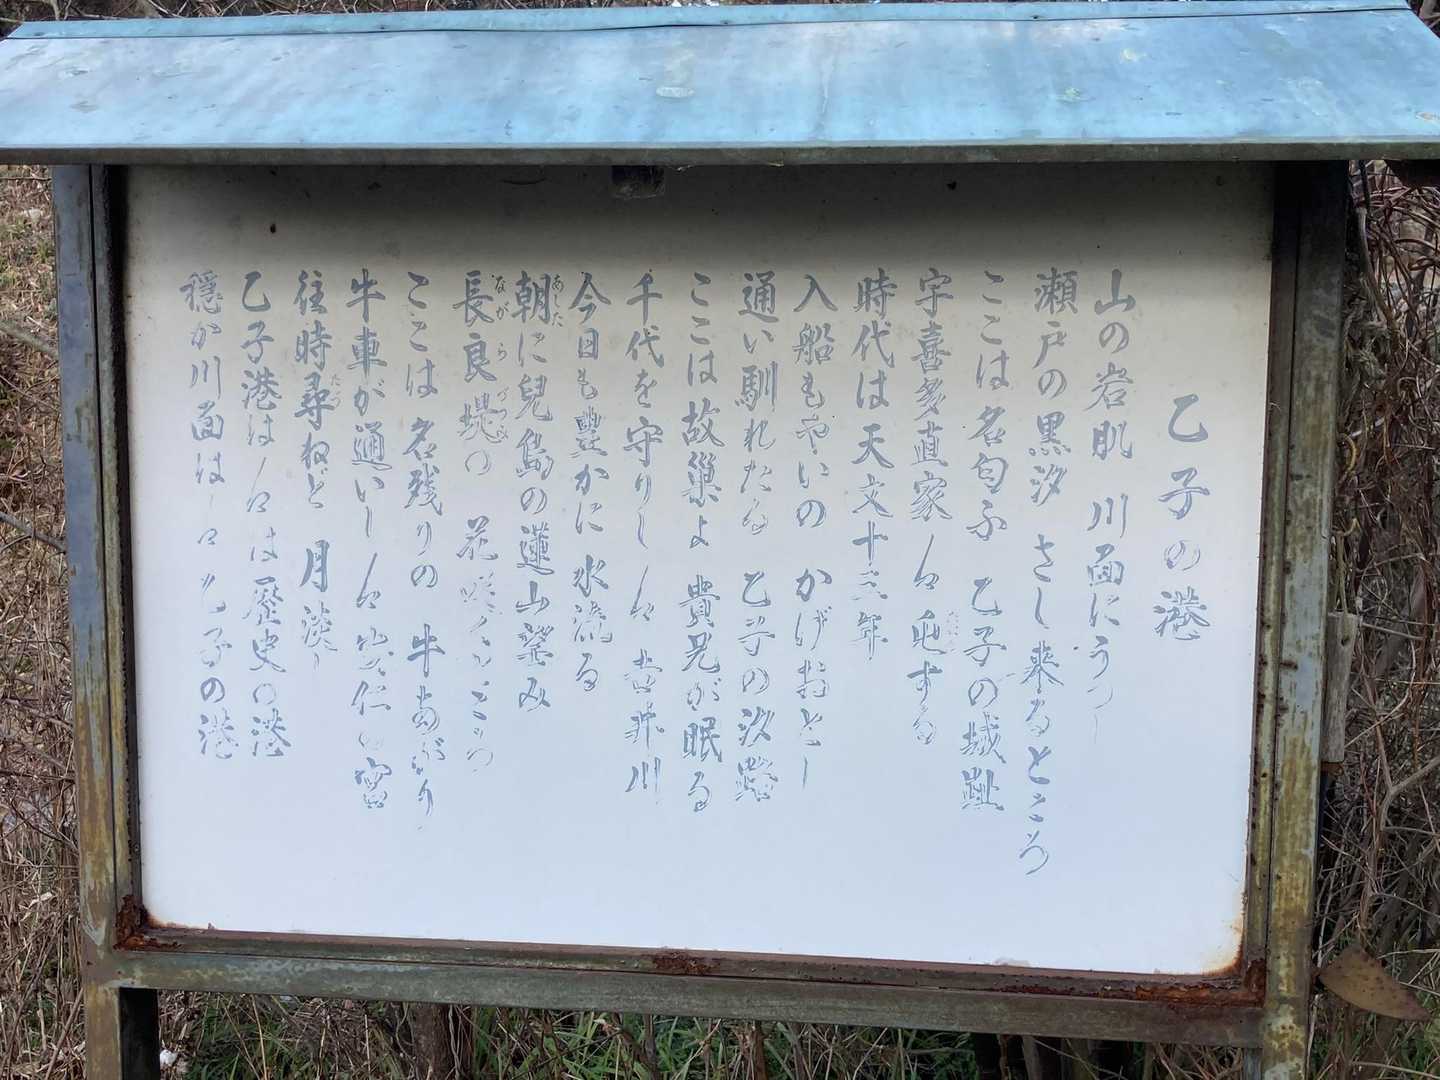 乙子の港
山の岩肌 川面にうつし
瀬戸の黒汐 さし来るところ
ここは名匂ふ 乙子の城趾
宇喜多直家ここに屯する
時代は天文十三年
入船もやいの かげおとし
通い馴れたる 乙子の汐路
ここは故巣よ 貴兄が眠る
千代を守りし ここ 吉井川
今日も豊かに 水流る
朝に兒島の蓮山望み
長良堤の 花咲くところ
ここは名残りの 牛あがり
牛車が通いし ここ 安仁の宮
往時尋ねど 月淡し
乙子港はここは歴史の港
穏か川面は 乙子の港